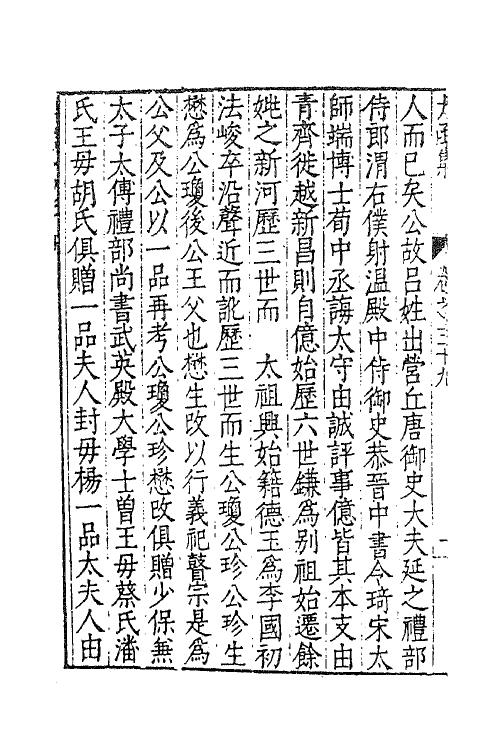 卷之三十九
人而已矣公故呂姓出營丘唐御史大夫延之禮部
侍郎渭右僕射温殿中侍御史恭晉中書令琦宋太
師端博士荀中丞誨太守由誠評事億皆其本支由
青齊徙越新昌則自億始歷六世鎌為别祖始遷餘
姚之新河歷三世而　太祖興始籍德玉為李國初
法峻卒沿聲近而訛歷三世而生公瓊公珍公珍生
懋為公瓊後公王父也懋生改以行義祀瞽宗是為
公父及公以一品再考公瓊公珍懋改俱贈少保無
太子太傅禮部尚書武英殿大學士曽王母蔡氏潘
氏王母胡氏俱贈一品夫人封母楊一品太夫人由